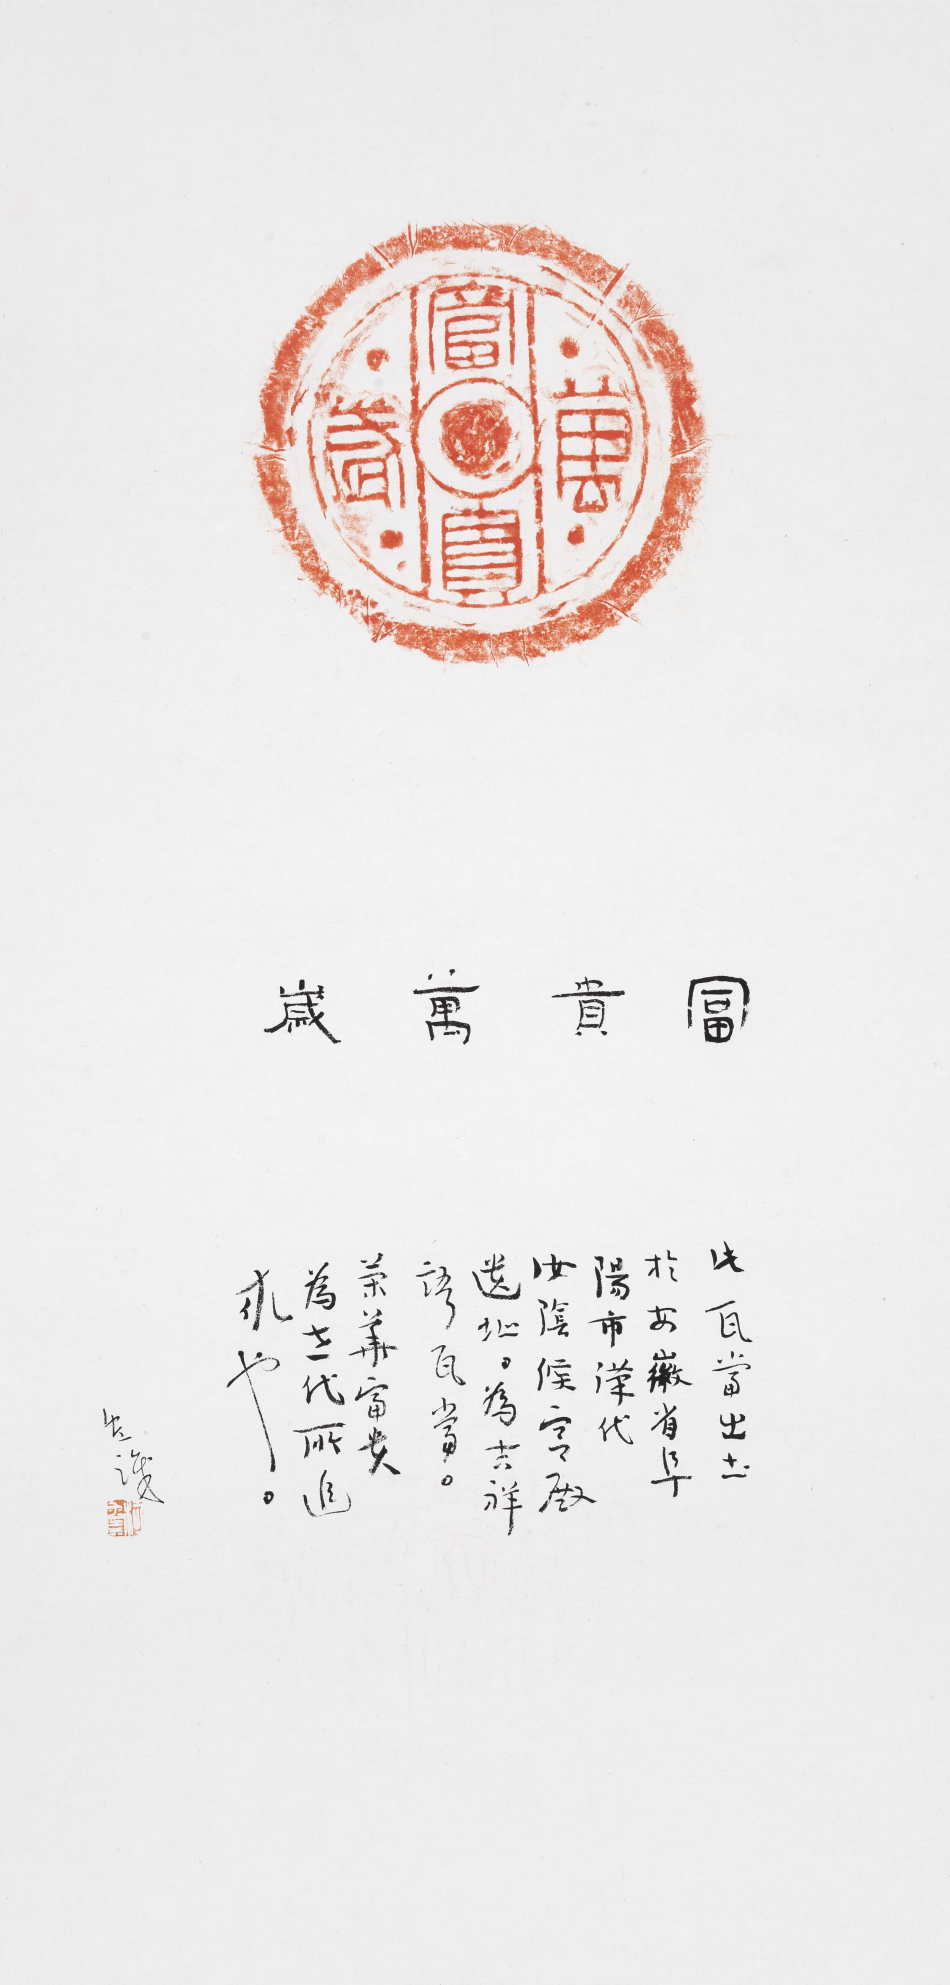 富貴萬歲
富貴萬歲
此瓦當出土
於安徽省阜
陽市漢代
汝陰侯宮殿
遺址。為吉祥
語瓦當。
榮華富貴
為世代所追
求也。
識